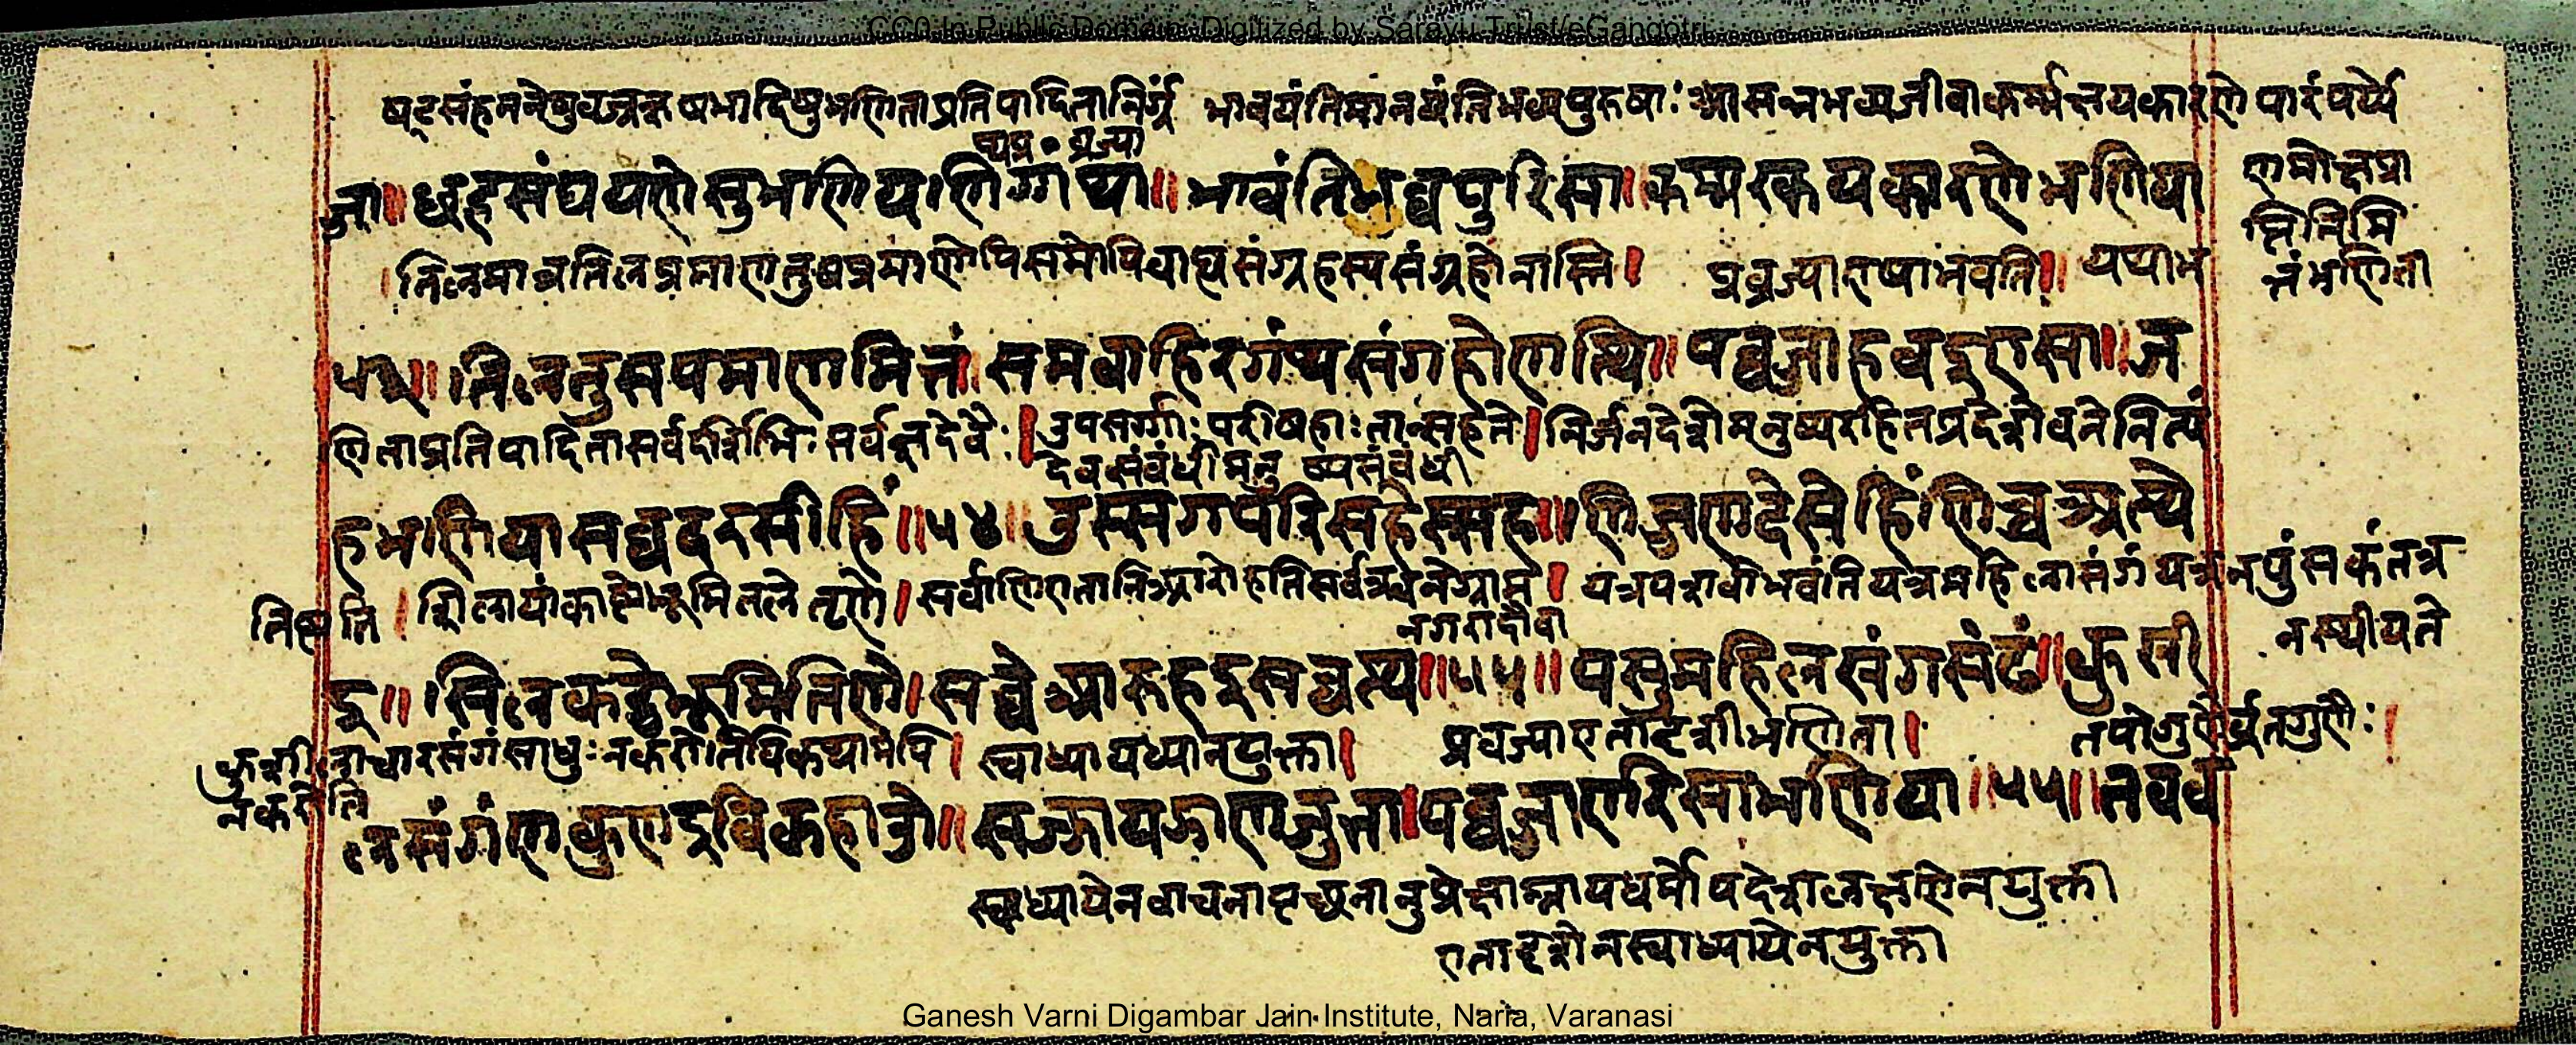 CC0. In Public Domain. Digitized by Sarayu Trust/eGangotri
षट्संहननेषुवज्रऋषभादिषुभणिताप्रतिपादितानिर्ग्रं भावयंतिमानयंतिभव्यपुरुषाः आसन्नभव्यजीवाकर्म्मक्षयकारणे पारंपर्य्ये
ज्जा॥ छहसंघयणेसुभणियणिग्गंथा॥ भावंतिभव्वपुरिसा॥ कम्मरकयकारणेभणिया
णमोक्षप्रा
प्तिनिमि
त्तंभणिता
तिलमात्रतिलप्रमाणतुषप्रमाणेपिसमोपिबाह्यसंग्रहस्यसंग्रहोनास्ति। प्रव्रज्याएषाभवति॥ यथाभ
॥ तिलतुसपमाणमित्तं समबाहिरगंथसंगहोणत्थि॥ पव्वज्जाहवइएसा॥ ज
णिताप्रतिपादितासर्वदर्शिभिः सर्वज्ञदेवैः। उपसर्ग्गाः परीषहाः तान्सहते। निर्जनदेशेमनुष्यरहितप्रदेशेवनेनित्यं
देवसंबंधीमनुष्यसंबंधी
हभणियासव्वदरसीहिं॥५४॥ उस्सगपरिसहेस्सह॥ णिज्जणदेसेहिंणिच्चअत्थे
तिष्ठति। शिलायांकाष्ठेभूमितले तृणे। सर्वाणिएतानिआरोहतिसर्वत्रवनेग्राम। यत्रपशवोभवंतियत्रमहिलासंगंयत्रनपुंसकंतत्र
नगरादौवा
नस्थीयते
इ॥ सिलकट्ठेभूमितिणे। सव्वेआरुहइसव्वत्थ॥५५॥ पसुमहिलसंगसंढं॥ कुसी
कुशीलाचारसंगंसाधुः नकरोतिविकथामपि। स्वाध्यायध्यानयुक्ता। प्रव्रज्याएतादृशीभणिता। तपोगुणैर्व्रतगुणैः।
नकरोति
लसंगंणकुणइविकहाउ॥ सज्झायझाणजुत्ता। पव्वज्जाएरिसाभणिया॥५५॥ तवव
स्वाध्यायेनवाचनापृच्छनानुप्रेक्षाम्नायधर्मोपदेशलक्षणेनयुक्ता
एतादृशेनस्वाध्यायेनयुक्ता
Ganesh Varni Digambar Jain Institute, Naria, Varanasi